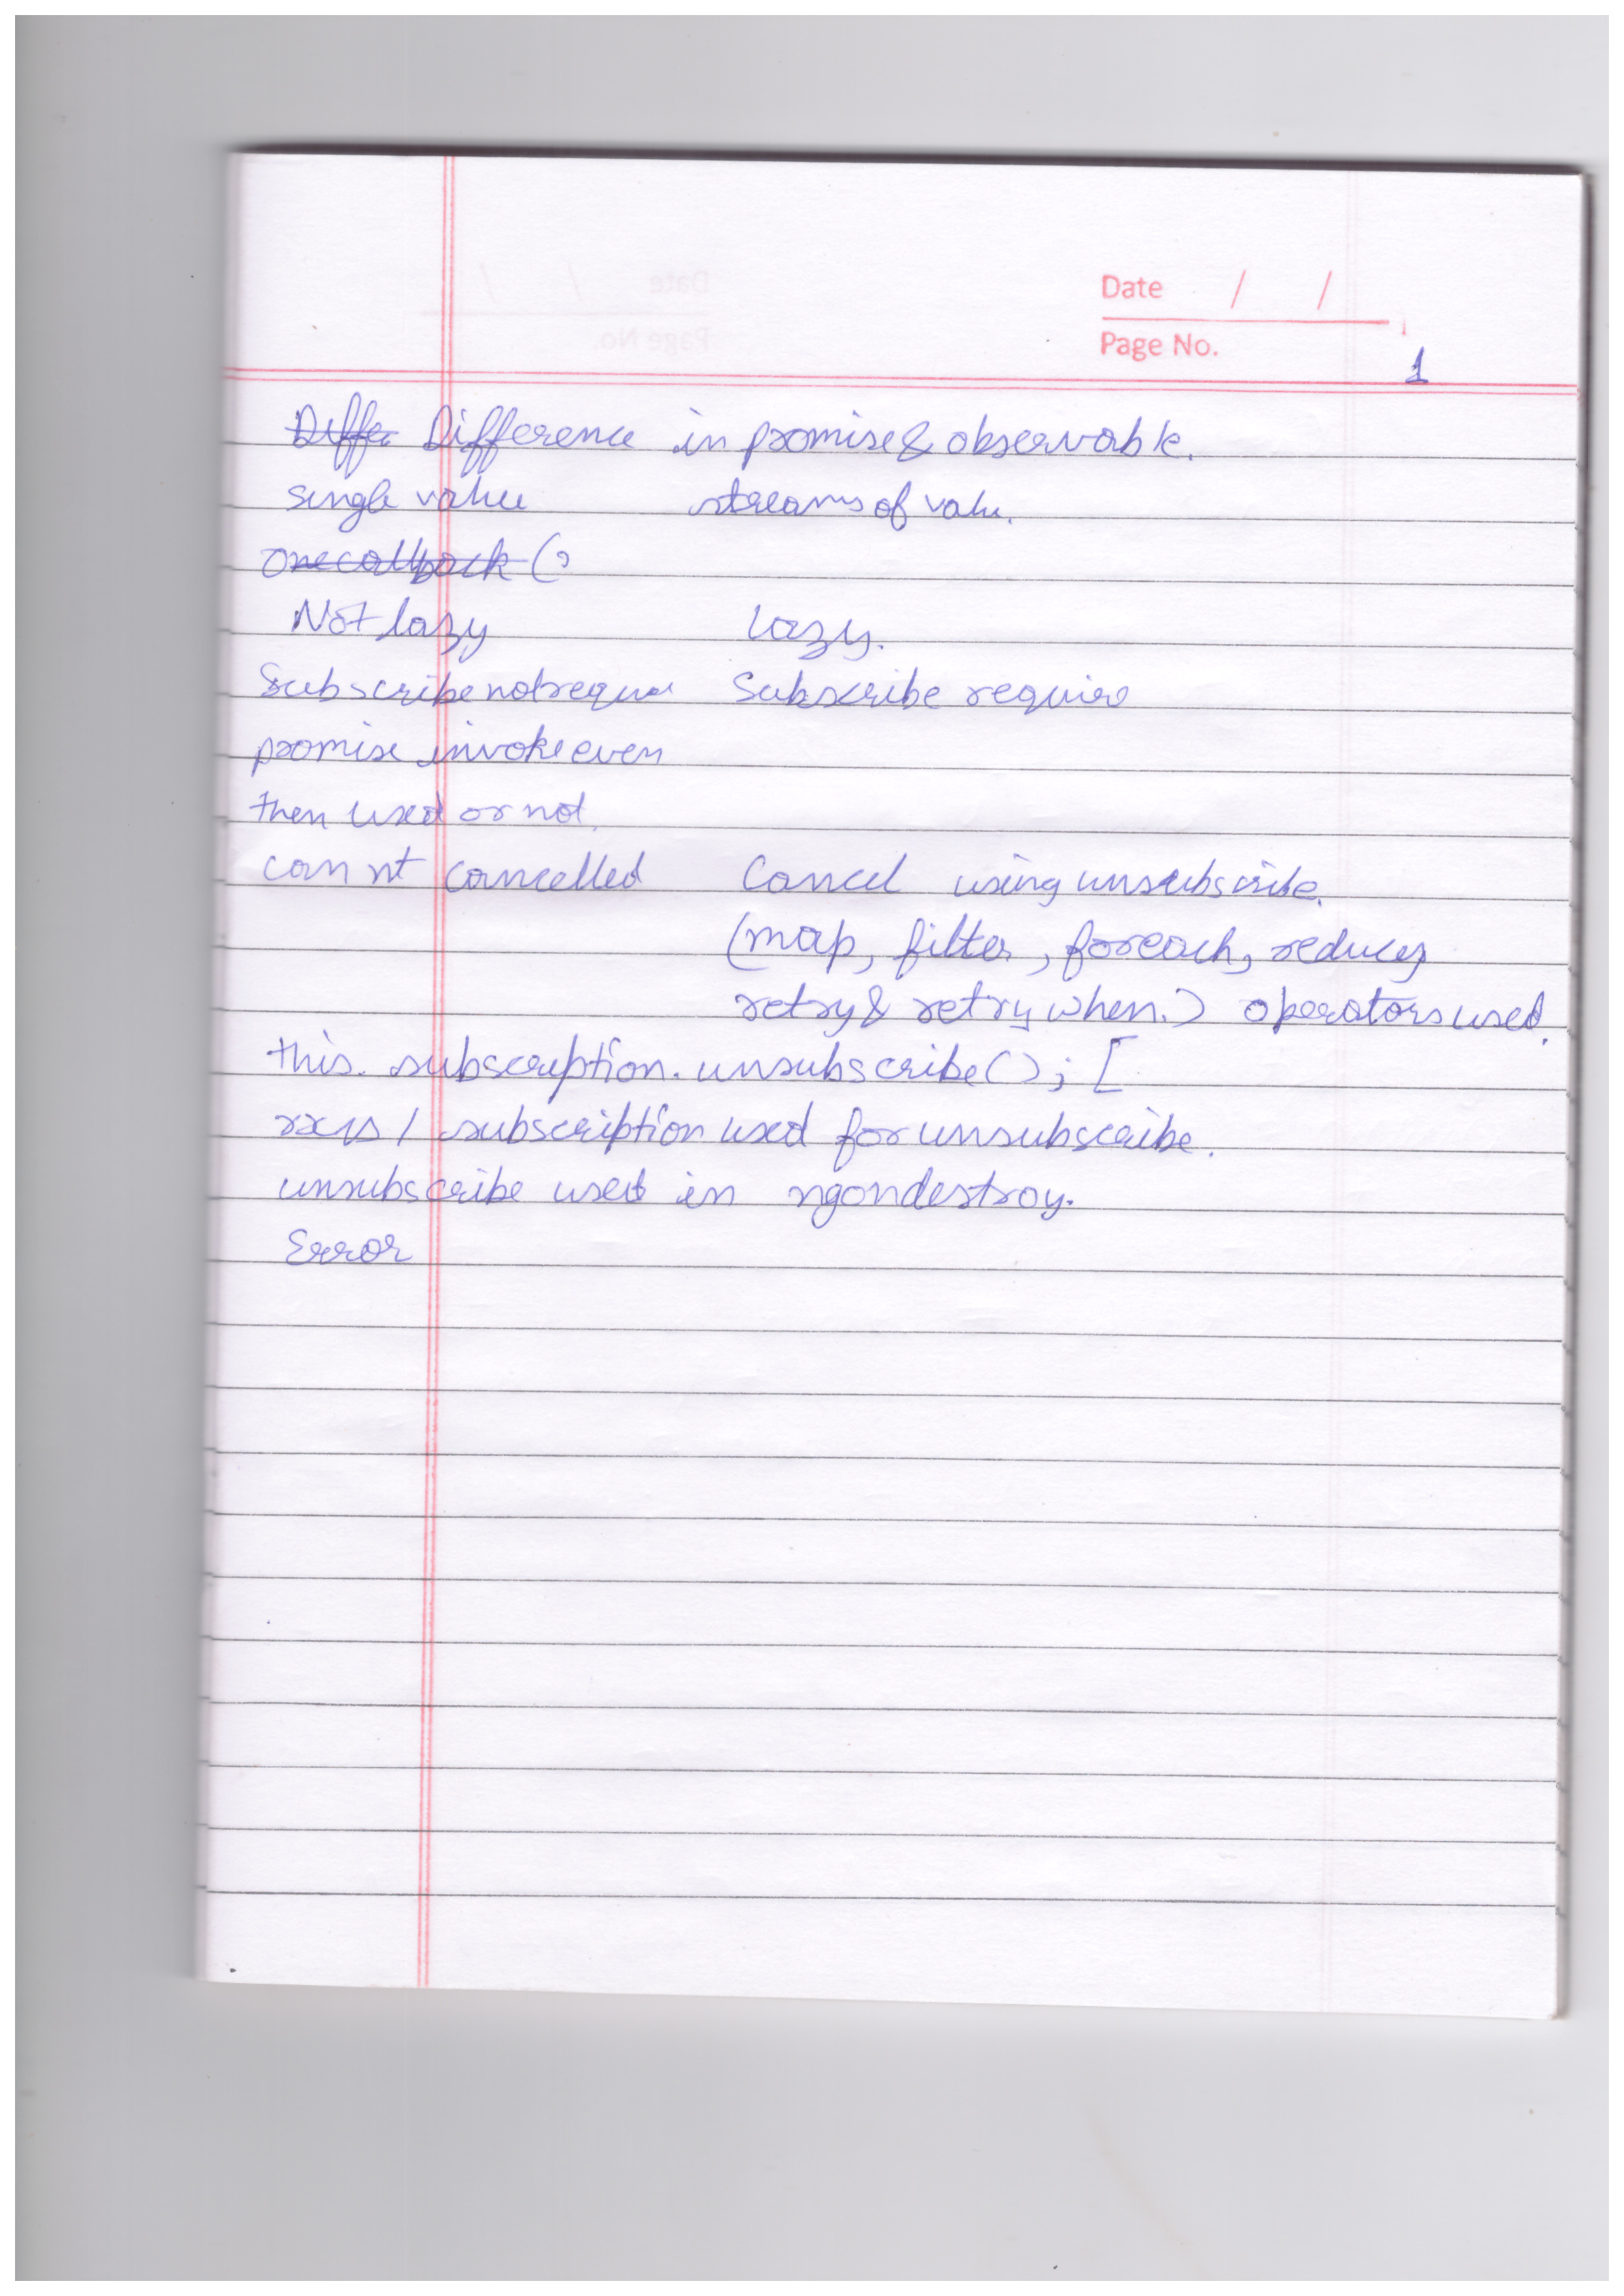 Date / /
Page No.
1
Differ Difference in promise & observable.
single value streams of value.
onecallback (
Not lazy Lazy.
Subscribe not require Subscribe require
promise invoke even
then used or not.
can nt cancelled Cancel using unsubscribe.
(map, filter, foreach, reducer,
retry & retry when.) operators used.
this. subscription. unsubscribe(); [
rxjs / subscription used for unsubscribe.
unsubscribe used in ngondestroy.
Error